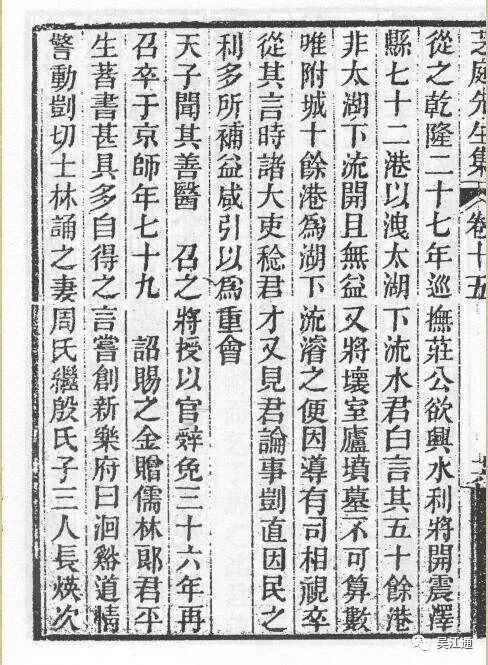 芝庭先生集 卷十五
從之乾隆二十七年巡撫莊公欲興水利將開震澤
縣七十二港以洩太湖下流水君白言其五十餘港
非太湖下流開且無益又將壞室廬墳墓不可算數
唯附城十餘港為湖下流濬之便因導有司相視卒
從其言時諸大吏稔君才又見君論事剴直因民之
利多所補益咸引以為重會
天子聞其善醫 召之將授以官辭免三十六年再
召卒于京師年七十九 詔賜之金贈儒林郎君平
生著書甚具多自得之言嘗創新樂府曰洄谿道情
警動剴切士林誦之妻周氏繼殷氏子三人長次
吴江通